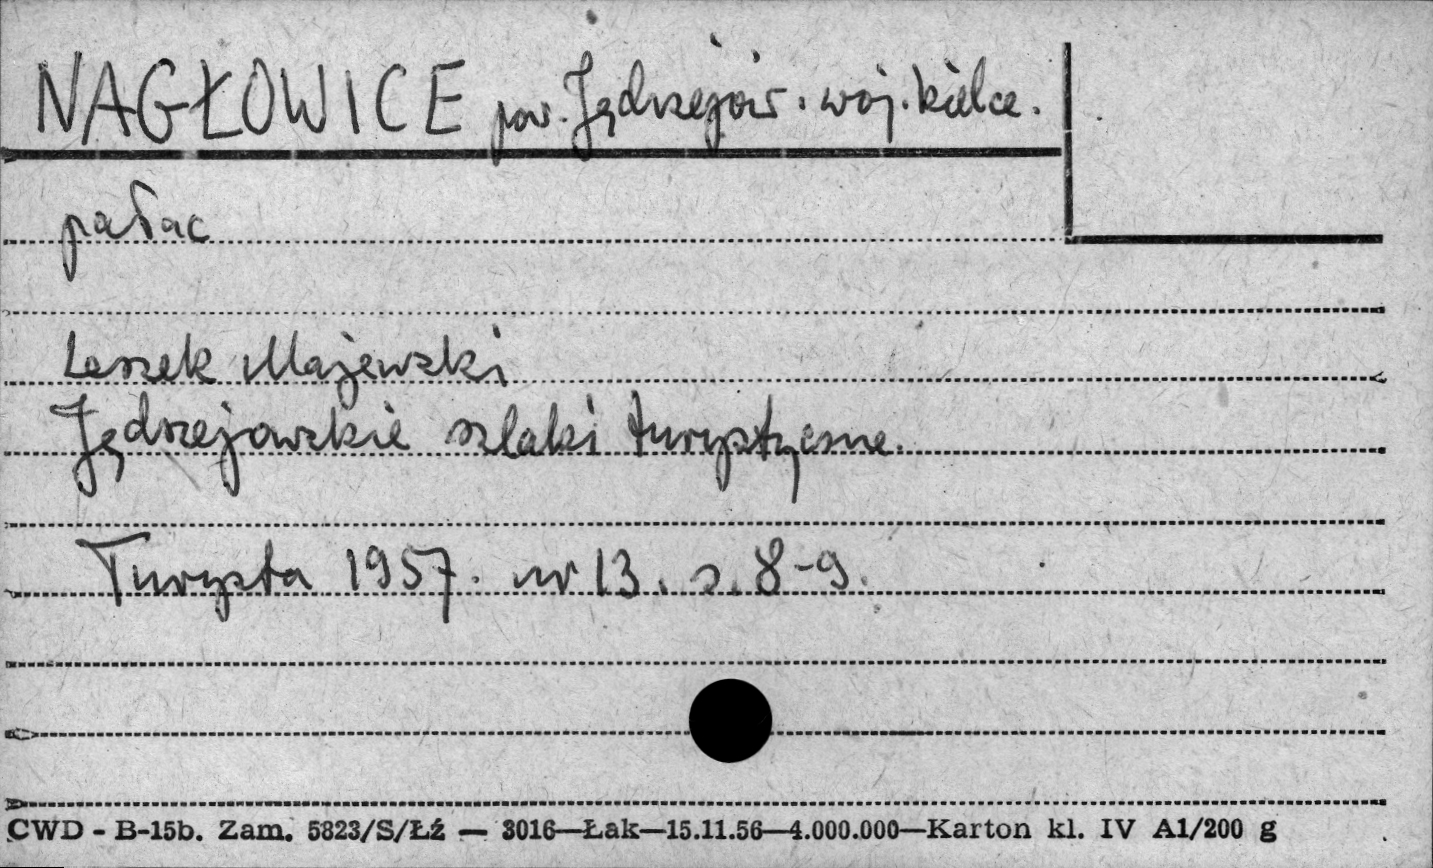 NAGŁOWICE pow. Jędrzejów. woj. kielce.
pałac
Leszek Majewski
Jędrzejowskie szlaki turystyczne.
Turysta 1957. nr 13. s. 8-9.
CWD - B-15b. Zam. 5823/S/Łź — 3016—Łak—15.11.56—4.000.000—Karton kl. IV A1/200 g